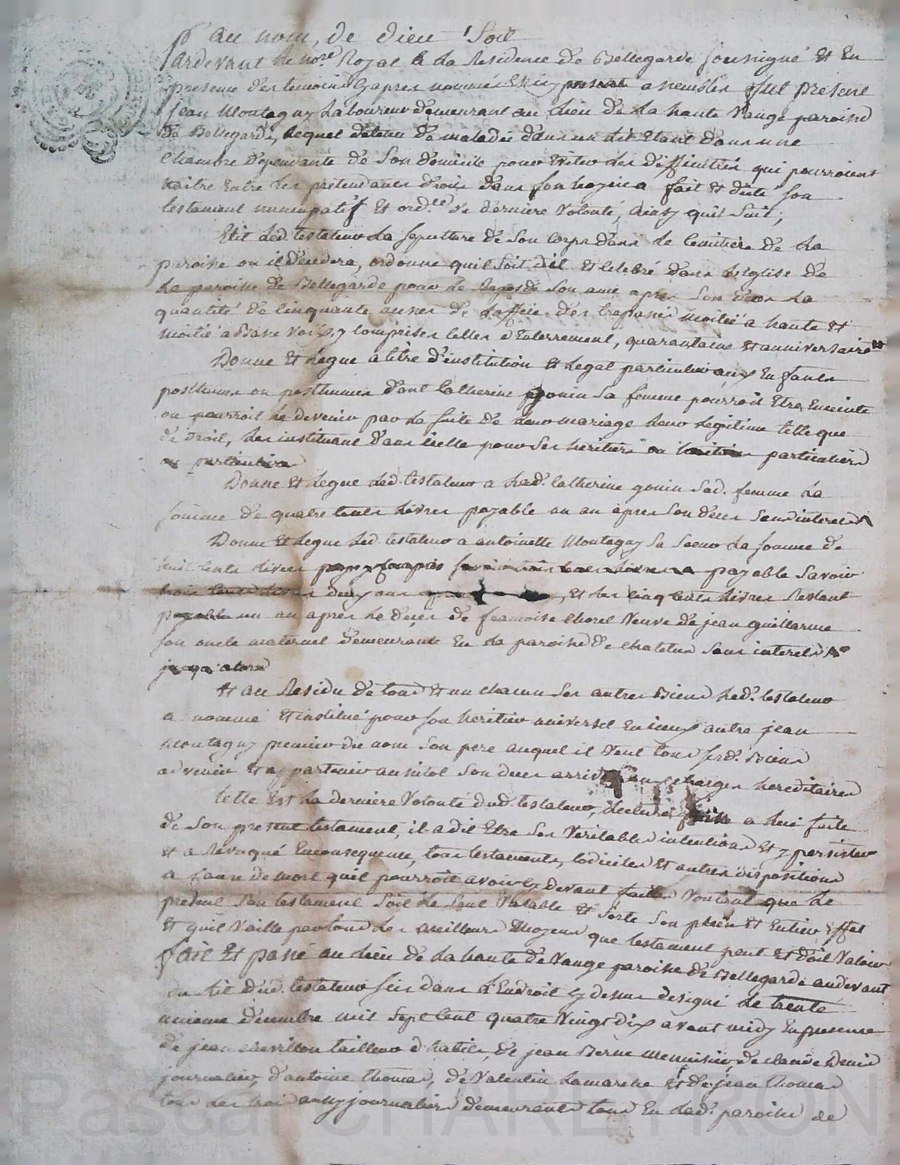 au nom de dieu Soit
Pardevant le nore Royal a La Residence de Bellegarde soussigné et En
presence des temoins cy apres nommés fut present
jean Montagny Laboureur demeurant au Lieu de La haute Vauge paroisse
de Bellegarde, Lequel detenu de maladie dans un lit Etant dans une
Chambre dependante de Son domicile pour Eviter les difficultés qui pourroient
naitre Entre les pretendants droit dans son hoyrie a fait et dicté son
testament nuncupatif et ordce de derniere Volonté, Ainsy quil Suit,
Elit led. testateur La sepulture de Son Corps dans le Cemitiere de La
paroisse ou il decedera, ordonne quil Soit dit et Celebré dans L'eglise de
La paroisse de Bellegarde pour le Repos de Son ame apres Son deces La
quantité de Cinquante messes de L'office des trepassés moitié a haute et
moitié a Basse Voix, y Comprises Celles d'Enterrement, quarantaine et anniversaire
Donne et Legue a titre d'institution et Legat particulier aux Enfants
posthume ou posthumes dont Catherine gonin Sa femme pourroit Etre Enceinte
ou pourroit Le devenir par La Suite de Leur mariage Leur Legitime telle que
de droit, Les instituant dans icelle pour Ses heritiers particuliers
Donne et Legue led. testateur a Lad. Catherine gonin Sad. femme La
somme de quatre Cents Livres payable un an apres Son deces Sans interets
Donne et Legue led. testateur a antoinette Montagny Sa Soeur La somme de
huit Cents Livres payable Savoir
trois Cents Livres deux ans , et les Cinq Cents Livres Restant
un an apres le deces de françoise Chorel Veuve de jean guillarme
son oncle maternel demeurante En La paroisse de Chatelus Sans interets
jusqu'alors
Et au Residu de tous et un chacun Ses autres Biens led. testateur
a nommé et institué pour son heritier universel Sieur autre jean
Montagny premier du nom Son pere auquel il Veut tous sesd. Biens
advenir et appartenir aussitot Son deces arrivé aux charges hereditaires
telle Est La derniere Volonté dud. testateur, Lecture a Lui faite
de Son present testament, il a dit Etre Ses Veritables intentions et y persister
et a Revoqué En consequence, tous testaments, Codiciles et autres dispositions
a Cause de mort quil pourroit avoir cy devant faites Voulant que Le
present Son testament Soit le Seul Valable et Sorte Son plein et Entier Effet
et quil Vaille par tous les meilleurs Moyens que testament peut et doit Valoir
fait et passé au Lieu de La haute de Vauge paroisse de Bellegarde au devant
du lit dud. testateur Sis dans L'Endroit cy dessus designé Le trente
unieme decembre mil Sept Cent quatre Vingt dix avant midy En presence
de jean Chevillon tailleur d'habits, de jean Berne Menuisier, de Claude denis
journalier, d'antoine thomas, de Valentin Lamarche et de jean thomas
tous Les trois aussy journaliers demeurants tous En Lad. paroisse de
Pascal CHAREYRON